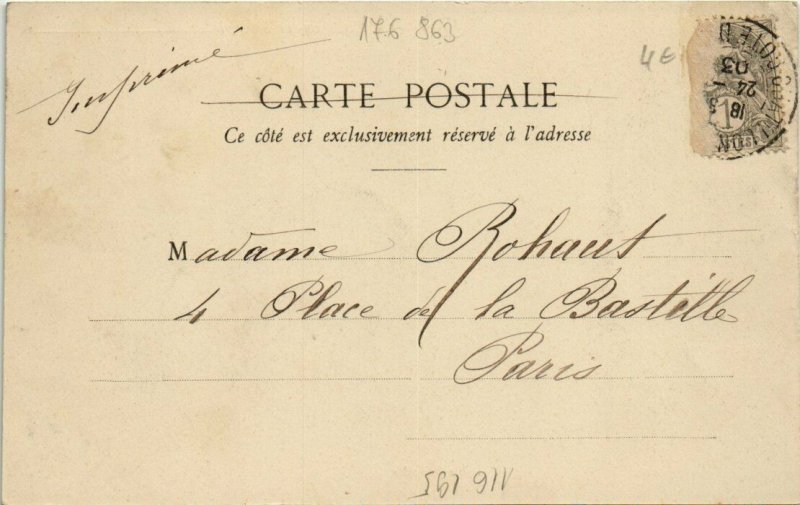 17.6 863
Imprimé
4€
CARTE POSTALE
Ce côté est exclusivement réservé à l'adresse
18
24 - 1
03
Madame Rohaut
4 Place de la Bastille
Paris